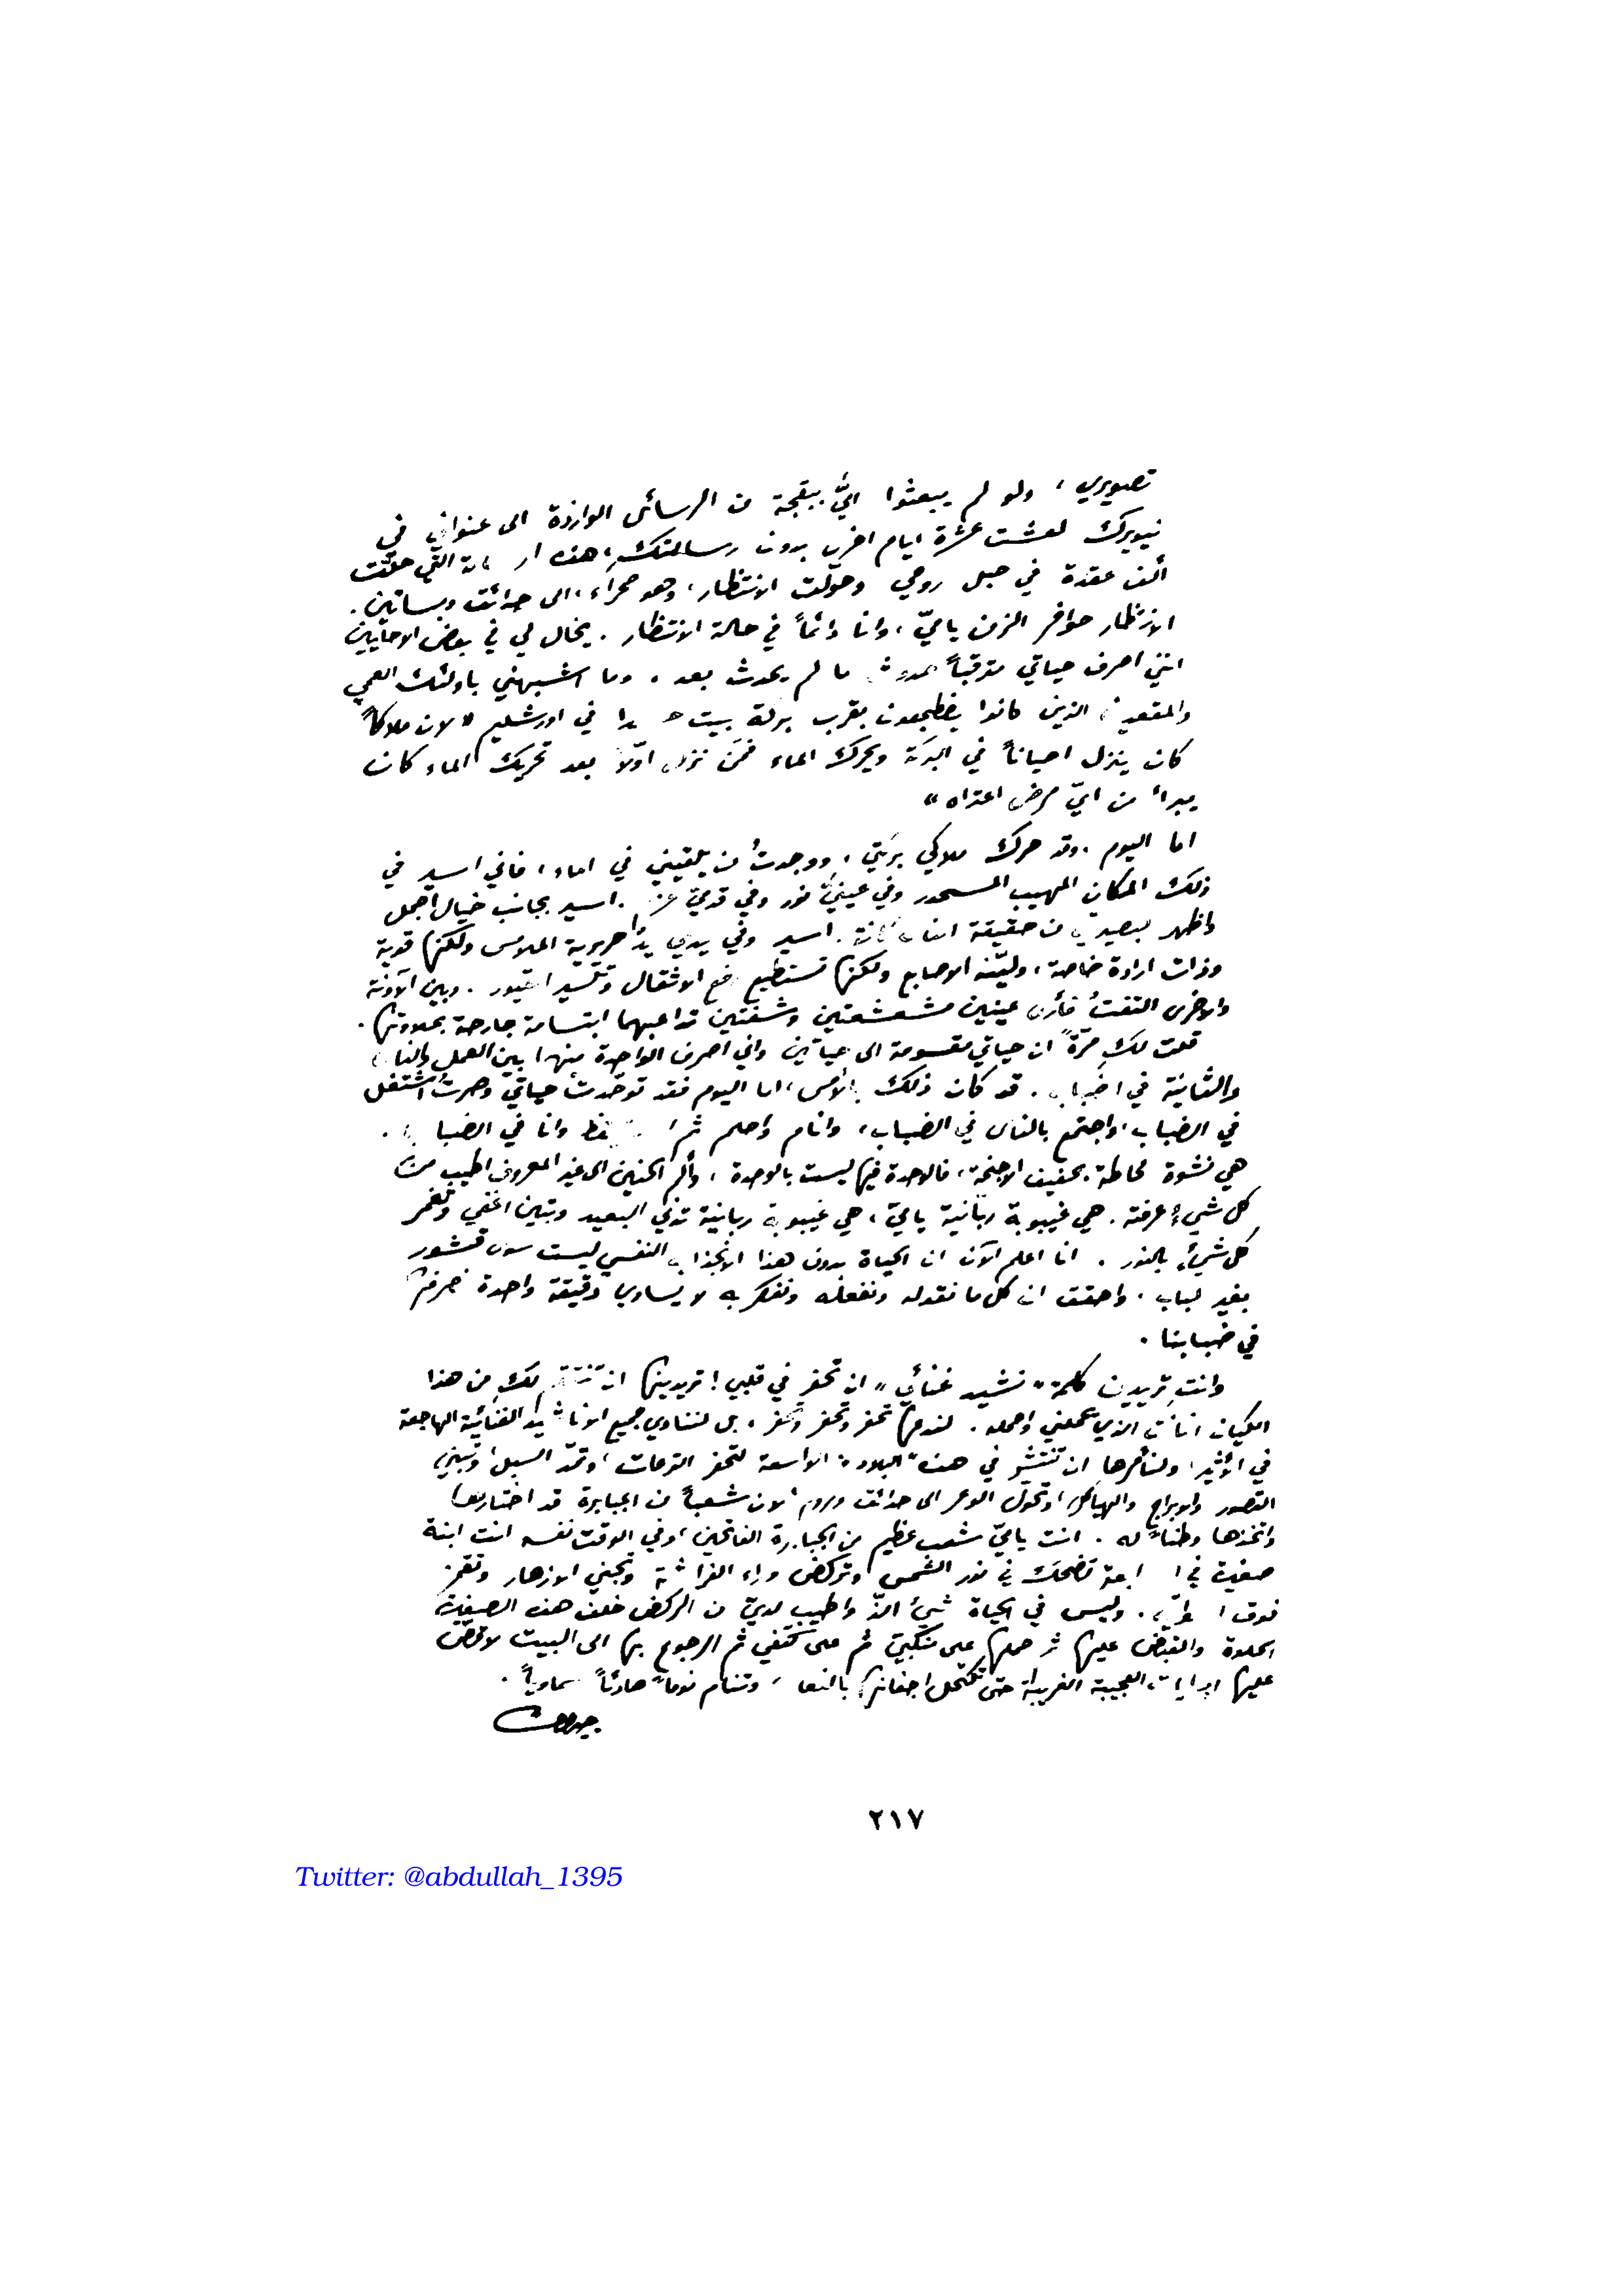 تصويري ، ولو لم يبعثوا اليَّ ببقجة من الرسائل الواردة الى عنواني في
نيويرك لعشت عشرة ايام اخرى بدون رسالتك ، هذه التي حلّت
ألف عقدة في حبل روحي وحوّلت الانتظار ، وهو صحراء ، الى حدائق وبساتين .
الانتظار حوافر الزمن يا ميّ ، وانا دائماً في حالة الانتظار . يخال لي في بعض الاحايين
انني اصرف حياتي مترقباً حدوث ما لم يحدث بعد . وما اشبهني باولئك العمي
والمقعدين الذين كانوا يضطجعون بقرب بركة بيت حسدا في اورشليم « لان ملاكاً
كان ينزل احياناً في البركة ويحرك الماء فمَن نزل اوّلاً بعد تحريك الماء كان
يبرأ من ايّ مرض اعتراه »
اما اليوم ، وقد حرك ملاكي بركتي ، ووجدتُ من يلقيني في الماء ، فاني اسير في
ذلك المكان المهيب المسحور وفي عينيَّ نور وفي قدميّ عزم . اسير بجانب خيال اجمل
واظهر لبصيرتي من حقيقة الناس كافة . اسير وفي يدي يدٌ حريرية الملامس ولكنها قوية
وذات ارادة خاصة ، وليّنة الاصابع ولكنها تستطيع رفع الاثقال وتكسير القيود . وبين الآونة
والاخرى التفتُ فأرى عينين مشعشعتين وشفتين تداعبهما ابتسامة جارحة بحلاوتها .
قلت لكِ مرّةً ان حياتي مقسومة الى حياتين واني اصرف الواحدة منهما بين العمل والناس
والثانية في الضباب . قد كان ذلك بالأمس ، اما اليوم فقد توحّدت حياتي وصرتُ اشتغل
في الضباب ، واجتمع بالناس في الضباب ، وانام واحلم ثم استيقظ وانا في الضباب .
هي نشوة محاطة بحفيف الاجنحة ، فالوحدة فيها ليست بالوحدة ، وألم الحنين الى غير المعروف اطيب من
كل شيءٍ عرفته . هي غيبوبة ربّانية يا ميّ ، هي غيبوبة ربانية تدني البعيد وتبين الخفي وتغمر
كل شيءٍ بالنور . انا اعلم الآن ان الحياة بدون هذا الانجذاب النفسي ليست سوى قشور
بغير لباب . واحقق ان كل ما نقوله ونفعله ونفكر به لا يساوي دقيقة واحدة نصرفها
في ضبابنا .
وانتِ تريدين كلمة « نشيد غنائي » ان تحفر في قلبي ! تريدينها ان تنتقم لكِ من هذا
الكيان الذي يحملني واحمله . لندعها تحفر وتحفر وتحفر ، بل لننادي جميع الاناشيد الغنائية الهاجعة
في الأثير ، ولنأمرها ان تنتشر في هذه البلاد الواسعة لتحفر الترعات ، وتمدّ السبل ، وتبني
القصور والابراج والهياكل ، وتحوّل الوعر الى حدائق وكروم ، لان شعباً من الجبابرة قد اختارها
واتخذها وطناً له . انت يا ميّ شعب عظيم من الجبابرة الفاتحين ، وفي الوقت نفسه انت ابنة
صغيرة في السابعة تضحك في نور الشمس وتركض وراء الفراشة وتجني الازهار وتقفز
فوق السواقي . وليس في الحياة شيءٌ الذّ واطيب لديّ من الركض خلف هذه الصغيرة
الحلوة والقبض عليها ثم حملها على منكبيّ ثم الرجوع بها الى البيت لاقصّ
عليها الحكايات العجيبة الغريبة حتى تكتحل اجفانها بالنعاس ، وتنام نوماً هادئاً سماوياً .
جبران
٢١٧
Twitter: @abdullah_1395